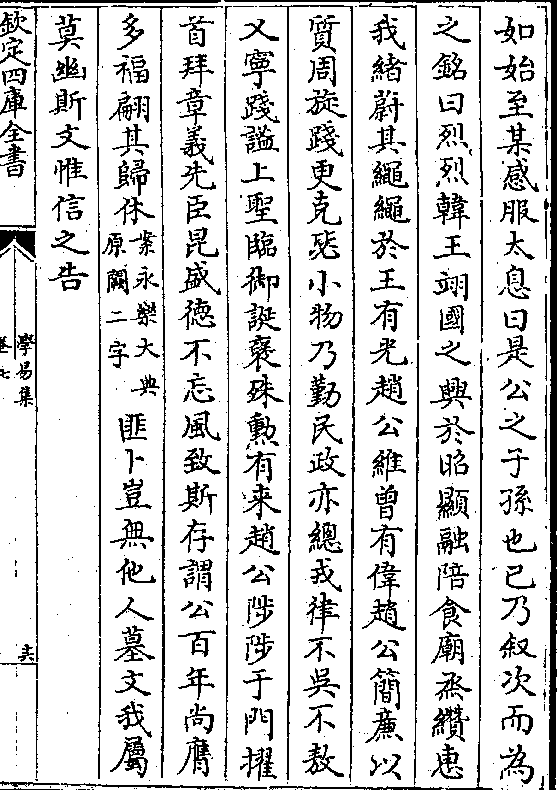 如始至某感服太息曰是公之子孫也已乃叙次而為
之銘曰烈烈韓王翊國之興於昭顯融陪食廟烝纘惠
我緒蔚其繩繩於王有光趙公維曾有偉趙公簡廉以
質周旋踐更克毖小物乃勤民政亦總戎律不吳不敖
乂寧踐謐上聖臨御誕褒殊勲有来趙公陟陟于門擢
首拜章義先臣昆盛德不忘風致斯存謂公百年尚膺
多福翩其歸休案永樂大典原闕二字匪卜豈無他人墓文我屬
莫幽斯文惟信之告
欽定四庫全書
學易集
卷七